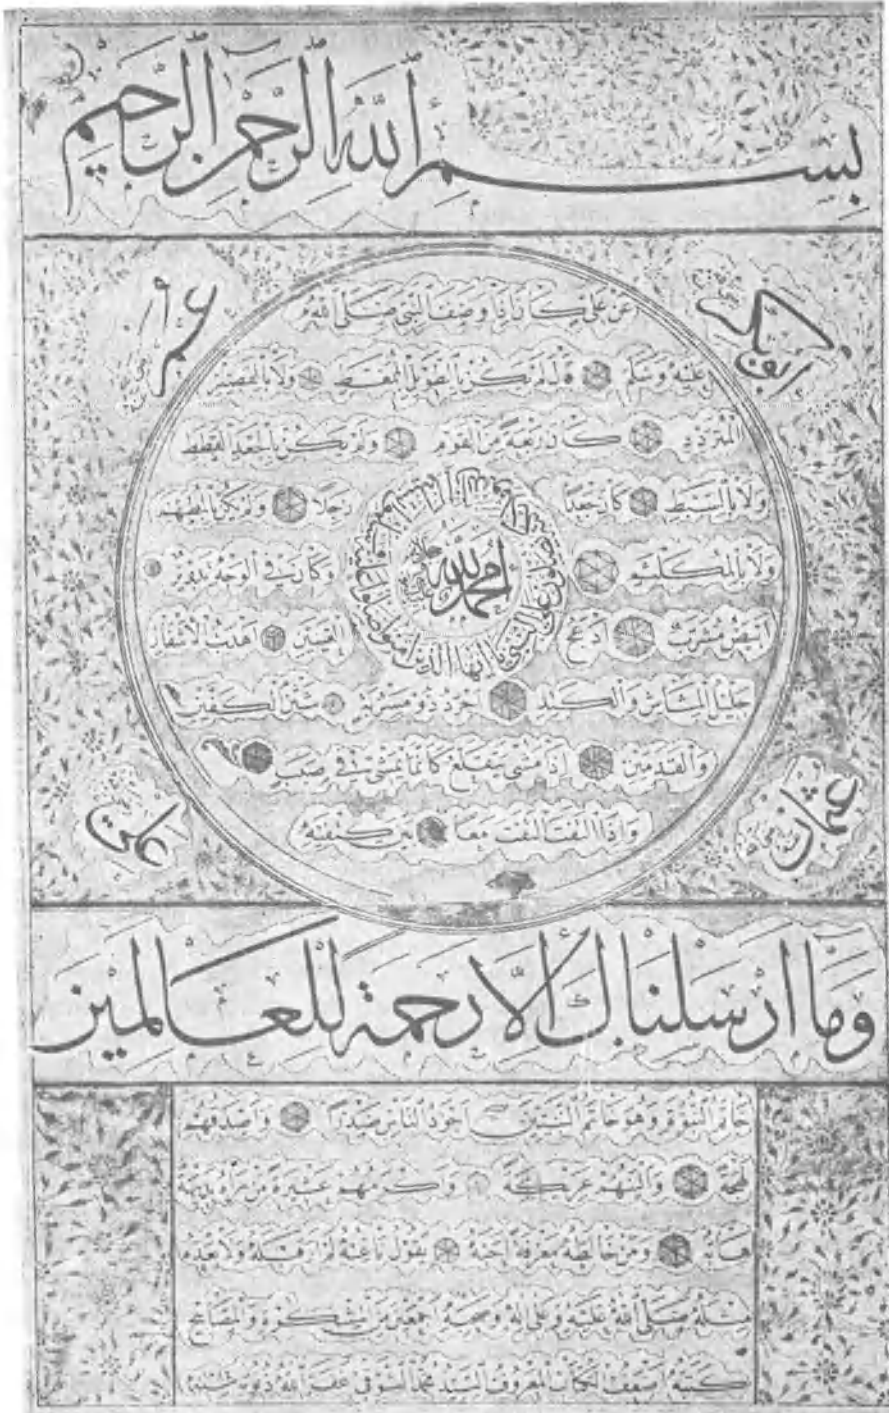 بِسْمِ اللهِ الرَّحْمٰنِ الرَّحِيمِ
ابوبكر
عمر
عَنْ عَلِيٍّ كَانَ إِذَا وَصَفَ النَّبِيَّ صَلَّى اللهُ
عَلَيْهِ وَسَلَّمَ قَالَ لَمْ يَكُنْ بِالطَّوِيلِ الْمُمَغَّطِ وَلَا بِالْقَصِيرِ
الْمُتَرَدِّدِ كَانَ رَبْعَةً مِنَ الْقَوْمِ وَلَمْ يَكُنْ بِالْجَعْدِ الْقَطَطِ
وَلَا بِالسَّبِطِ كَانَ جَعْدًا رَجِلًا وَلَمْ يَكُنْ بِالْمُطَهَّمِ
وَلَا بِالْمُكَلْثَمِ وَكَانَ فِي الْوَجْهِ تَدْوِيرٌ
اَبْيَضُ مُشْرَبٌ اَدْعَجُ الْعَيْنَيْنِ اَهْدَبُ الْاَشْفَارِ
جَلِيلُ الْمُشَاشِ وَالْكَتَدِ اَجْرَدُ ذُو مَسْرُبَةٍ شَثْنُ الْكَفَّيْنِ
وَالْقَدَمَيْنِ اِذَا مَشَى يَتَقَلَّعُ كَاَنَّمَا يَمْشِي فِي صَبَبٍ
وَاِذَا الْتَفَتَ الْتَفَتَ مَعًا بَيْنَ كَتِفَيْهِ
الله محمد
يَا اَيُّهَا الَّذِينَ اٰمَنُوا
عثمان
علي
وَمَا اَرْسَلْنَاكَ اِلَّا رَحْمَةً لِلْعَالَمِينَ
خَاتَمُ النُّبُوَّةِ وَهُوَ خَاتَمُ النَّبِيِّينَ اَجْوَدُ النَّاسِ صَدْرًا وَاَصْدَقُهُمْ
لَهْجَةً وَاَلْيَنُهُمْ عَرِيكَةً وَاَكْرَمُهُمْ عَشِيرَةً مَنْ رَاٰهُ بَدِيهَةً
هَابَهُ وَمَنْ خَالَطَهُ مَعْرِفَةً اَحَبَّهُ يَقُولُ نَاعِتُهُ لَمْ اَرَ قَبْلَهُ وَلَا بَعْدَهُ
مِثْلَهُ صَلَّى اللهُ عَلَيْهِ وَعَلَى اٰلِهِ وَصَحْبِهِ اَجْمَعِينَ مِنْ مِشْكٰوةِ وَالْمَصَابِيحِ
كَتَبَهُ اَضْعَفُ الْكُتَّابِ الْمَعْرُوفُ السَّيِّدُ مُحَمَّدُ الشَّوْقِي غَفَرَ اللهُ ذُنُوبَهُ